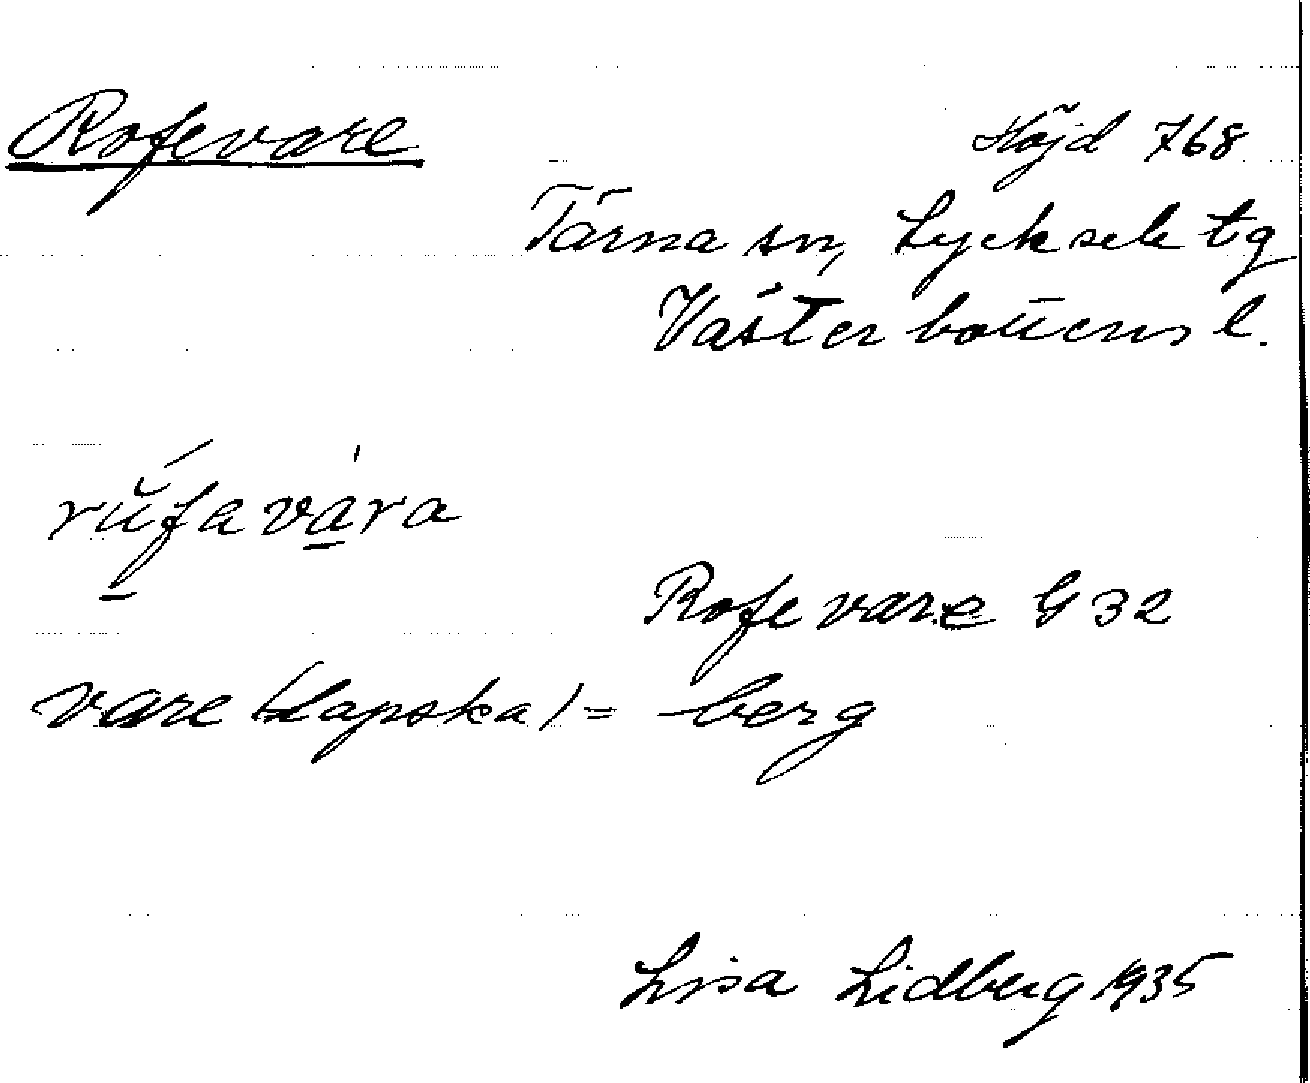 Rofevare
Höjd 768
Tärna sn, Lycksele tg
Västerbottens l.
rŭ́favȧ̱ra
Rofevare G 32
vare (Lapska) = berg
Lisa Lidberg 1935